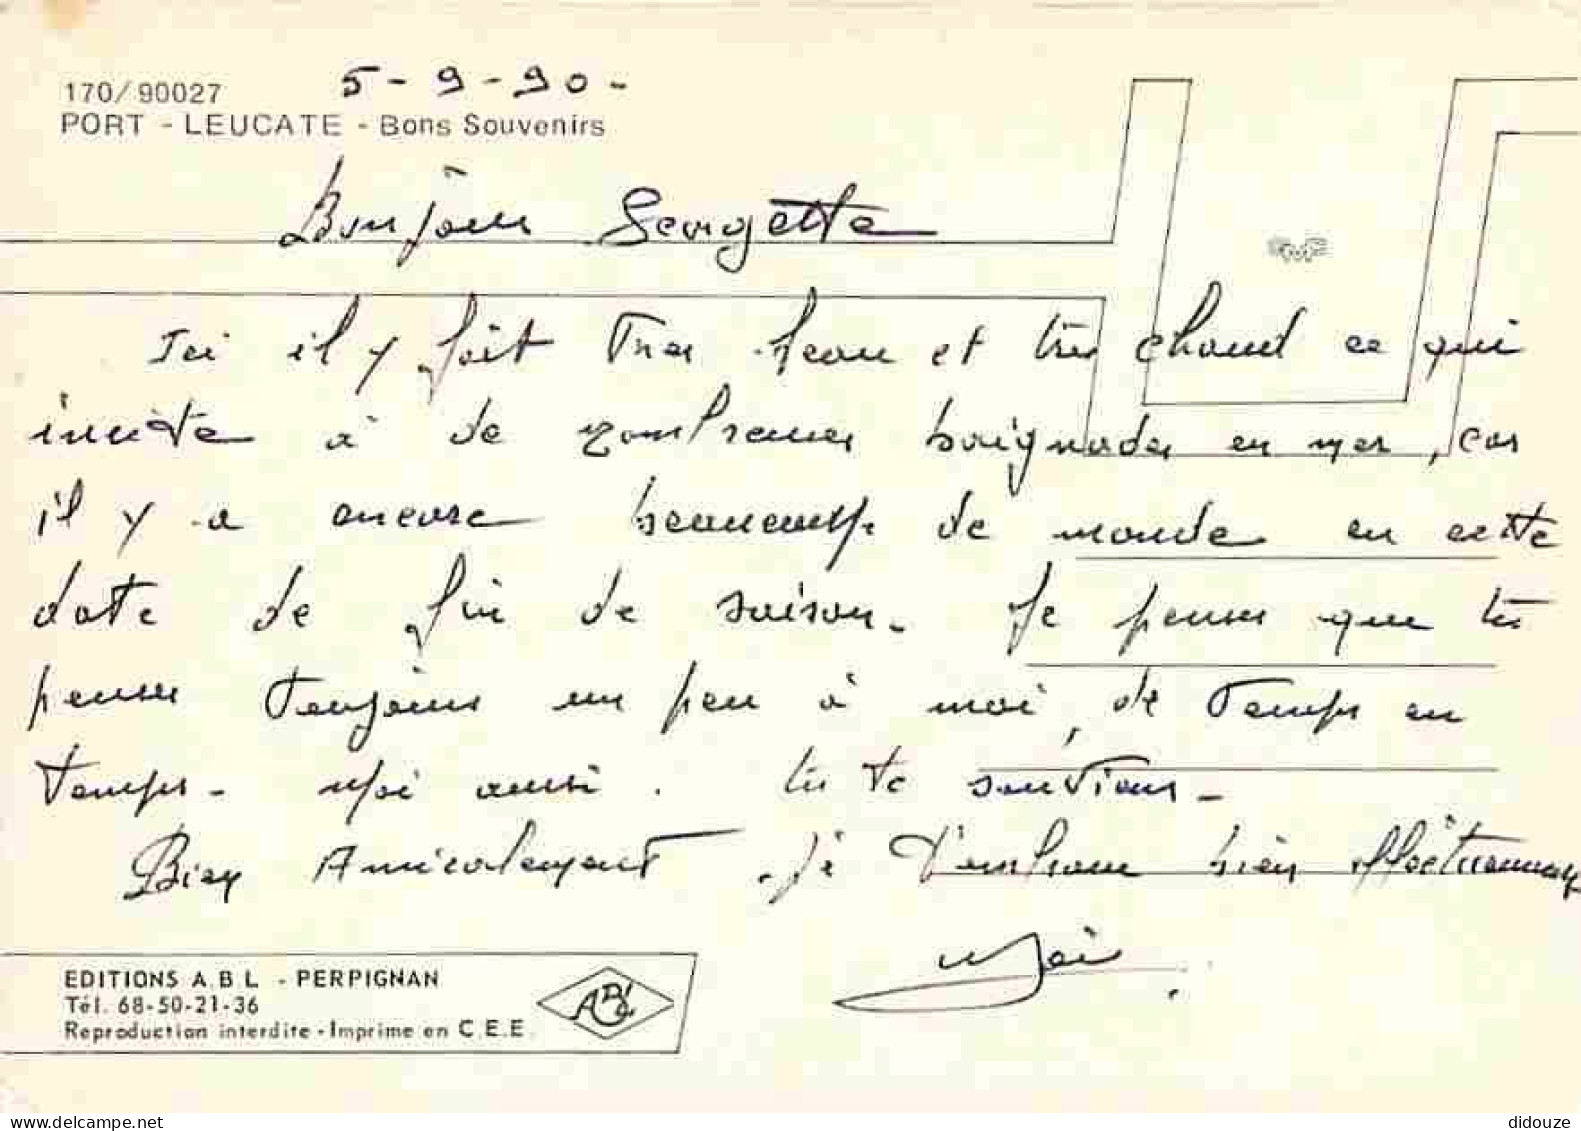 5-9-90-
170/90027
PORT - LEUCATE - Bons Souvenirs
Bonjour Georgette
Ici il y fait très beau et très chaud ce qui
invite à de nombreuses baignades en mer, car
il y a encore beaucoup de monde en cette
date de fin de saison. Je pense que tu
penses toujours un peu à moi, de temps en
temps. Moi aussi. tu te soutiens.
Bien Amicalement. Je t'embrasse bien affectueusement
EDITIONS A.B.L - PERPIGNAN
Tél. 68-50-21-36
Reproduction interdite - Imprime en C.E.E.
ABL
delcampe.net
didouze